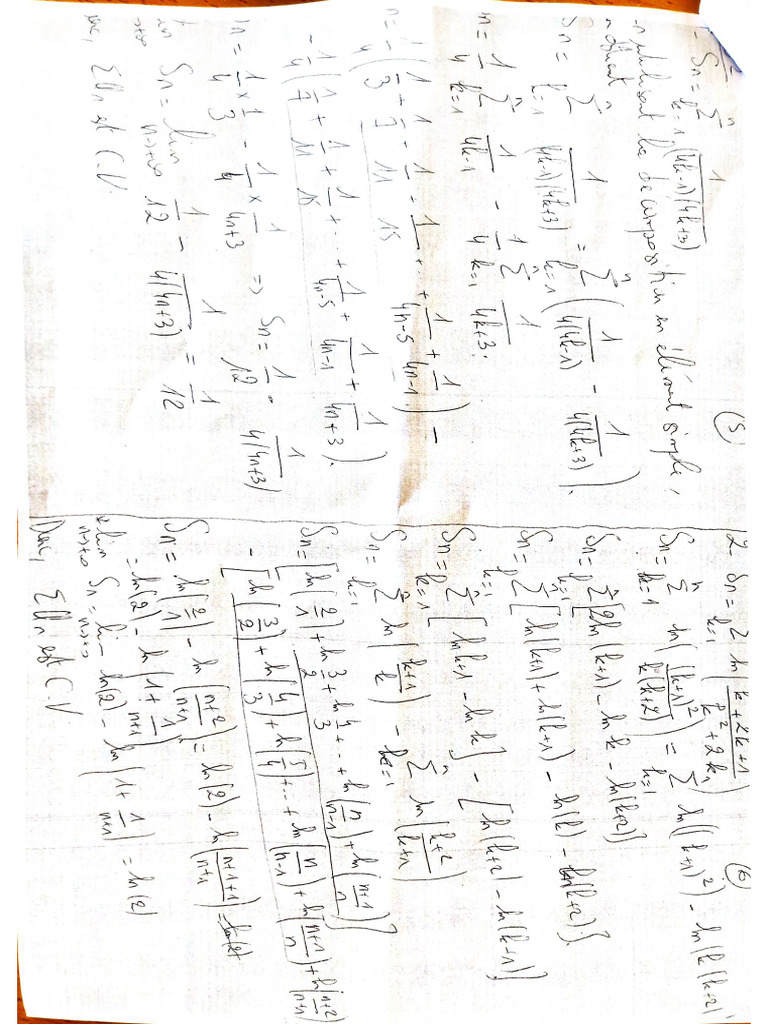 (5)
1- Sn = Σ_{k=1}^{n} 1/((4k-1)(4k+3))
En utilisant la décomposition en élément simple,
on obtient
Sn = Σ_{k=1}^{n} 1/((4k-1)(4k+3)) = Σ_{k=1}^{n} (1/(4(4k-1)) - 1/(4(4k+3))).
Sn = 1/4 Σ_{k=1}^{n} 1/(4k-1) - 1/4 Σ_{k=1}^{n} 1/(4k+3).
Sn = 1/4 (1/3 + 1/7 - 1/11 + 1/15 + ... + 1/(4n-5) + 1/(4n-1)) -
- 1/4 (1/7 + 1/11 + 1/15 + ... + 1/(4n-5) + 1/(4n-1) + 1/(4n+3)).
Sn = 1/4 × 1/3 - 1/4 × 1/(4n+3) => Sn = 1/12 - 1/(4(4n+3))
lim_{n→+∞} Sn = lim_{n→+∞} 1/12 - 1/(4(4n+3)) = 1/12
Donc, ΣUn est C.V.
(6)
2- Sn = Σ_{k=1}^{n} ln((k²+2k+1)/(k²+2k))
Sn = Σ_{k=1}^{n} ln((k+1)²/(k(k+2))) = Σ_{k=1}^{n} ln((k+1)²) - ln(k(k+2))
Sn = Σ_{k=1}^{n} [2ln(k+1) - ln k - ln(k+2)]
Sn = Σ_{k=1}^{n} [ln(k+1) + ln(k+1) - ln(k) - ln(k+2)].
Sn = Σ_{k=1}^{n} [ln k+1 - ln k] - [ln(k+2) - ln(k+1)]
Sn = Σ_{k=1}^{n} ln((k+1)/k) - Σ_{k=1}^{n} ln((k+2)/(k+1))
Sn = [ln(2/1) + ln 3/2 + ln 4/3 + ... + ln(n/(n-1)) + ln((n+1)/n)]
- [ln(3/2) + ln(4/3) + ln(5/4) + ... + ln(n/(n-1)) + ln((n+1)/n) + ln((n+2)/(n+1))
Sn = ln(2/1) - ln((n+2)/(n+1)) = ln(2) - ln((n+1+1)/(n+1))
= ln(2) - ln(1 + 1/(n+1))
* lim_{n→+∞} Sn = lim_{n→+∞} ln(2) - ln(1 + 1/(n+1)) = ln(2)
Donc, ΣUn est C.V.